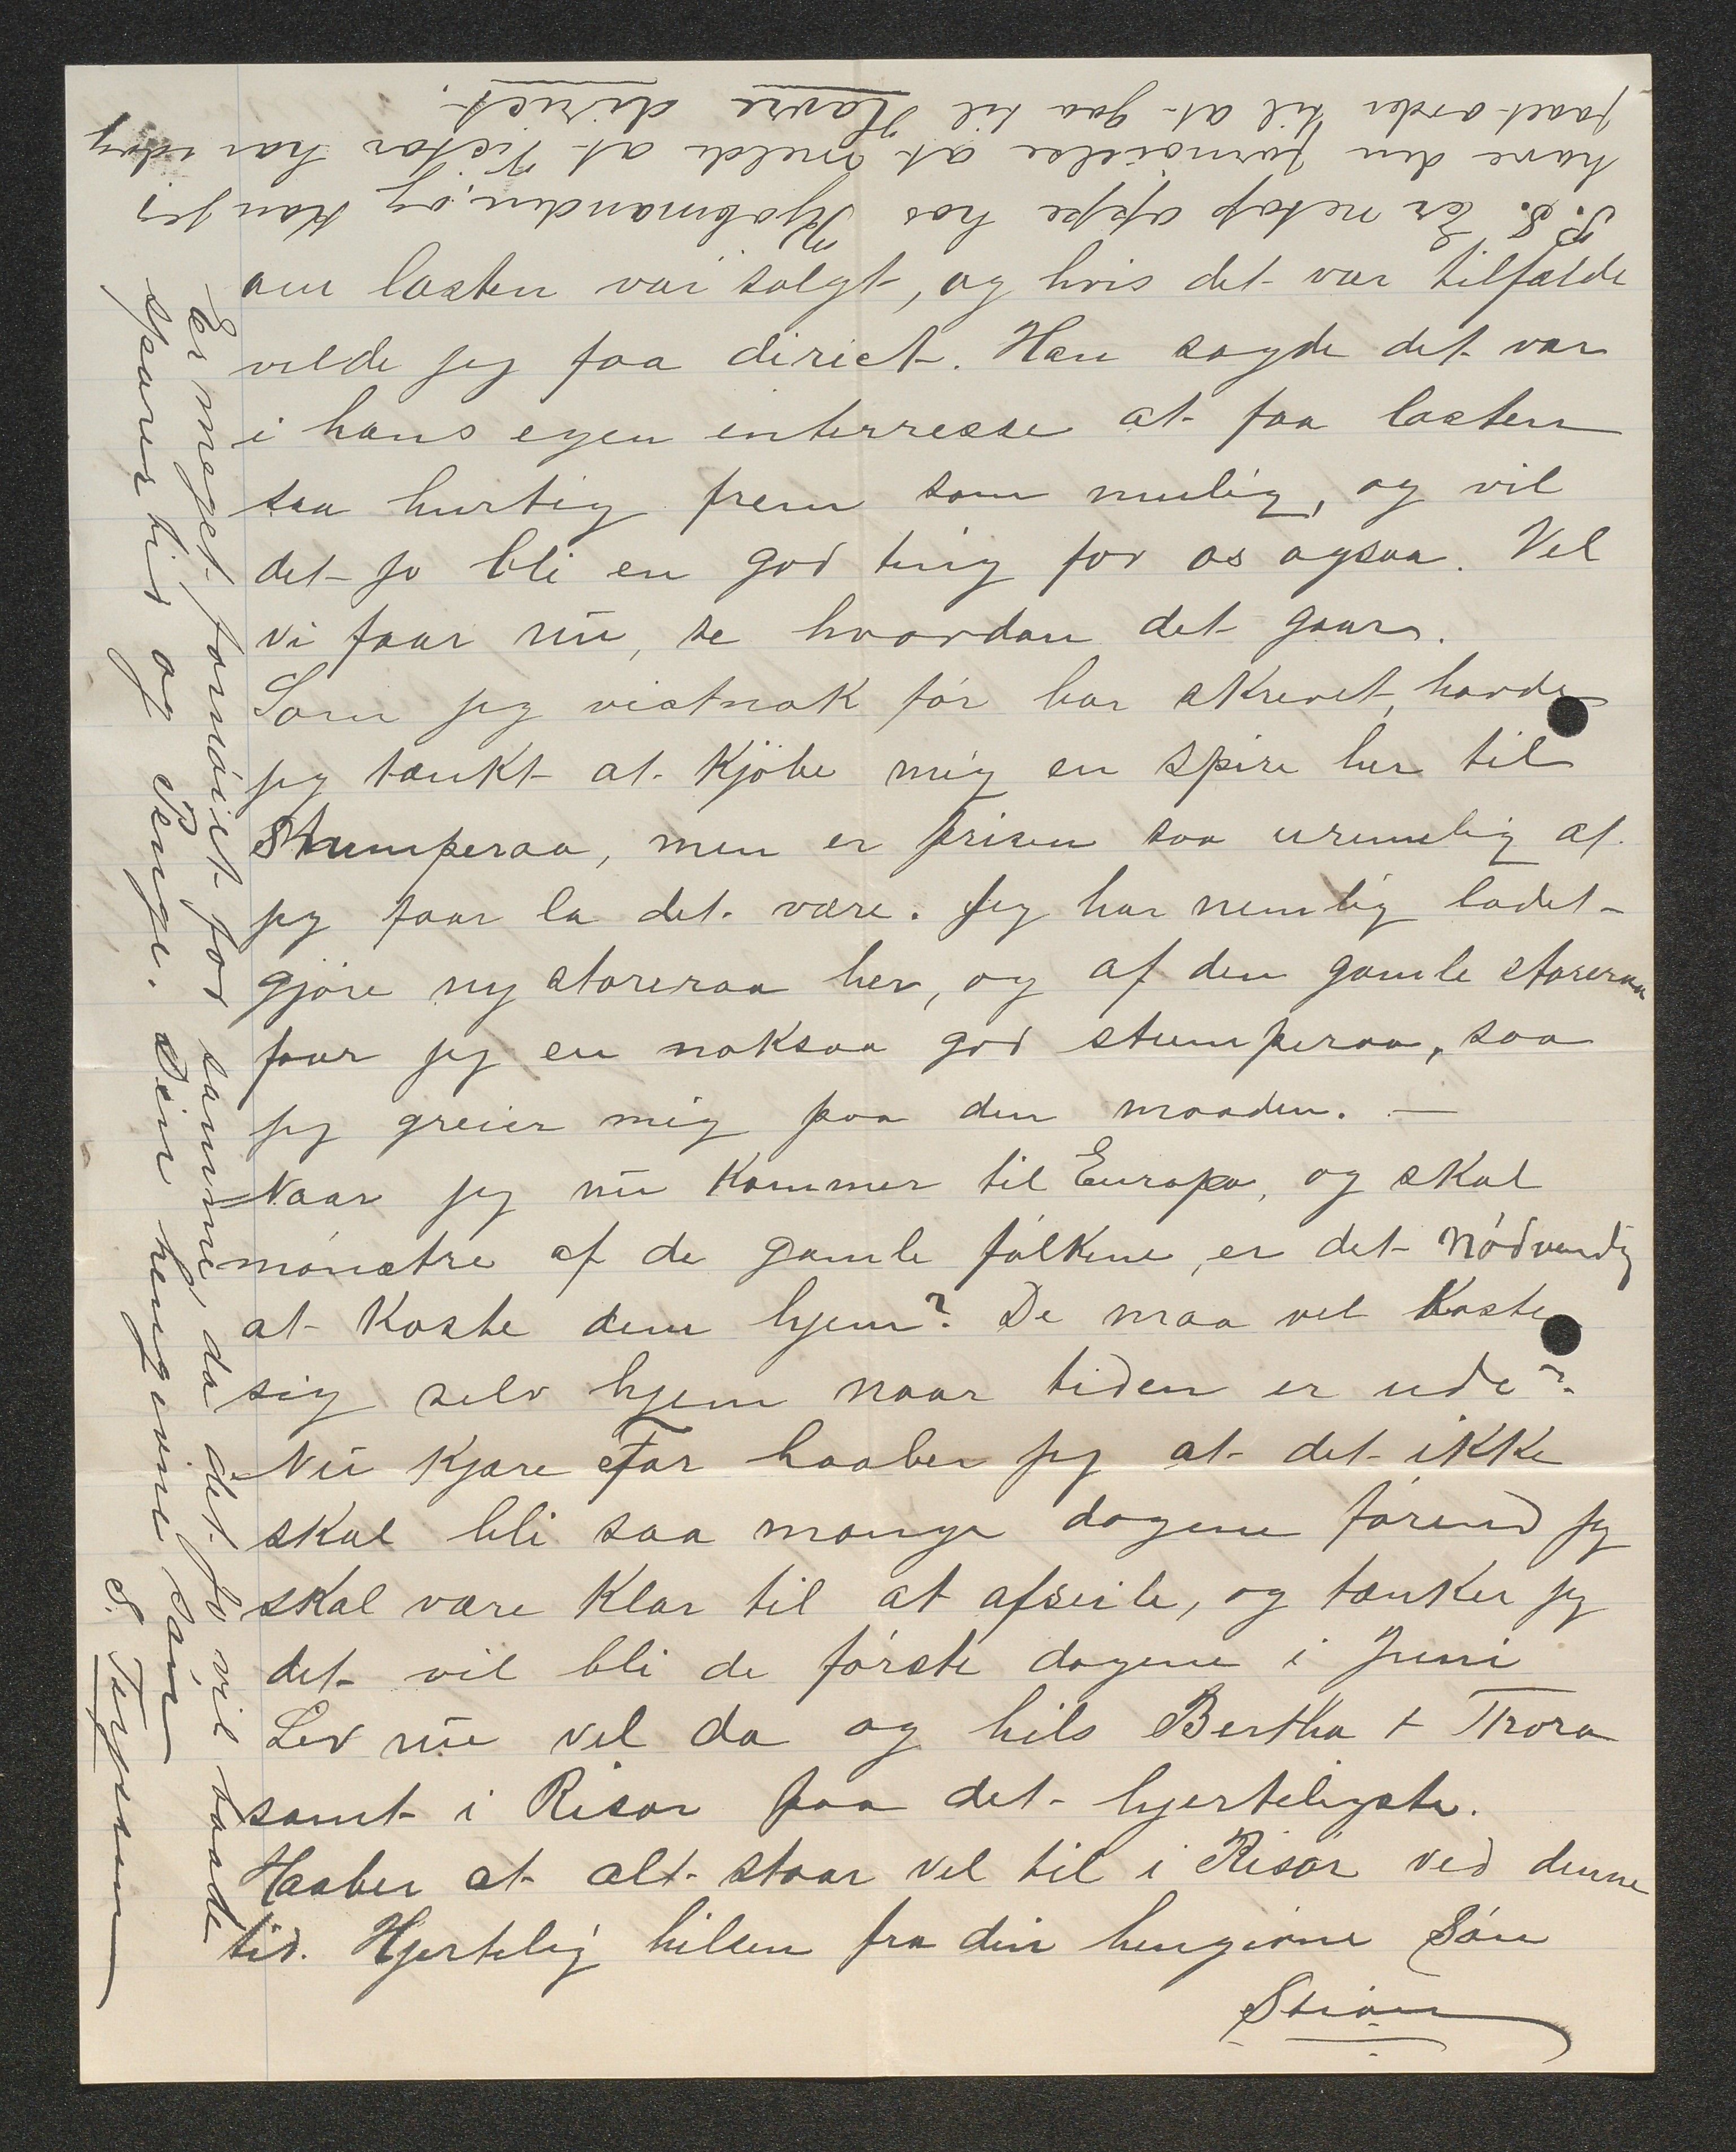 om lasten var solgt, og hvis det var tilfælde
vilde jeg faa direct. Han sagde det var
i hans egen interresse at faa lasten
saa hurtig frem som mulig, og vil
det jo bli en god ting for os ogsaa. Vel
vi faar nu, se hvordan det gaar.
Som jeg vistnok før har skrevet, havde
jeg tænkt at kjøbe mig en spire her til
Stumperaa, men er prisen saa urimelig at
jeg faar la det være. Jeg har nemlig ladet
gjøre ny storeraa her, og af den gamle storeraa
faar jeg en noksaa god stumperaa, saa
jeg greier mig paa den maaden. —
Naar jeg nu kommer til Europa, og skal
mønstre af de gamle folkene, er det nødvendig
at koste dem hjem? De maa vel koste
sig selv hjem naar tiden er ude?
Nu kjære Far haaber jeg at det ikke
skal bli saa mange dagene førend jeg
skal være klar til at afseile, og tænker jeg
det vil bli de første dagene i Juni
Lev nu vel da og hils Bertha + Thora
samt i Risør paa det hjerteligste.
Haaber at alt staar vel til i Risør ved denne
tid. Hjertelig hilsen fra din hengivne Søn
P.S. Er netop oppe hos Kjøbmanden, og kan jeg
have den fornøielse at melde at Victor har idag
faaet order til at gaa til Havre direct.
Er meget fornøiet for samme, da det jo vil baade
sparer tid og Penge. Din hengivne søn
S.